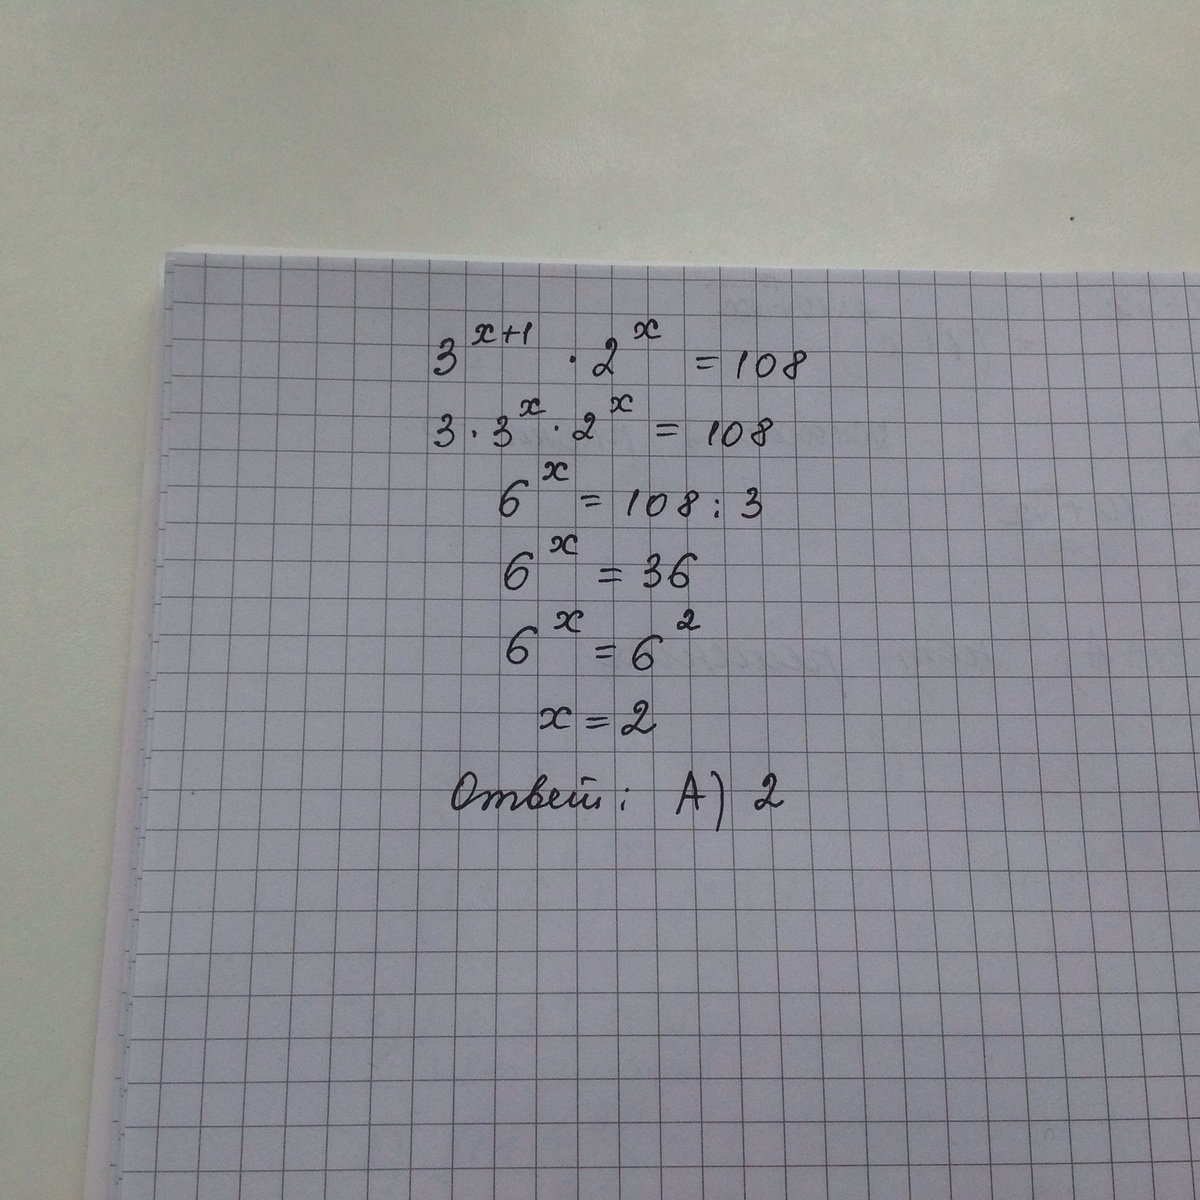 3^{x+1} · 2^x = 108
3 · 3^x · 2^x = 108
6^x = 108 : 3
6^x = 36
6^x = 6^2
x = 2
Ответ: А) 2